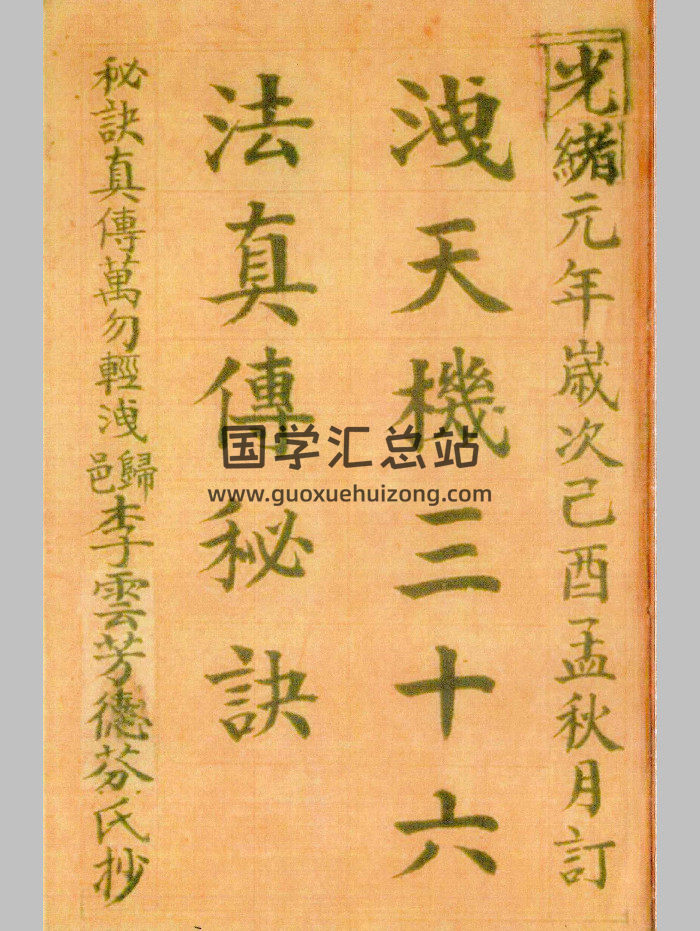 光緒元年嵗次己酉孟秋月訂
洩天機三十六
法真傳秘訣
秘訣真傳萬勿輕洩歸邑李雲芳德芬氏抄
国学汇总站
www.guoxuehuizong.com